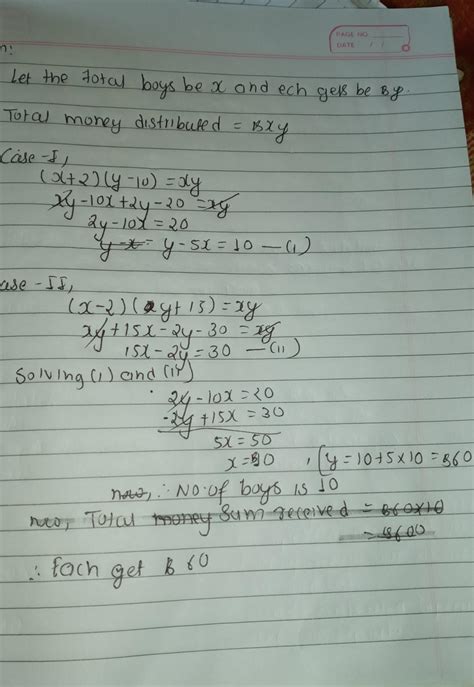 PAGE NO
DATE / /
n:
Let the total boys be x and ech gets be ₿y.
Total money distributed = ₿xy
Case-I,
(x+2)(y-10)=xy
xy-10x+2y-20=xy
2y-10x=20
y-x= y-5x=10 —(i)
ase-II,
(x-2)(y+15)=xy
xy+15x-2y-30=xy
15x-2y=30 —(ii)
Solving (i) and (ii)
2y-10x=20
-2y+15x=30
5x=50
x=10 , [y=10+5x10=₿60
now, ∴ No. of boys is 10
now, Total money Sum received = ₿60x10
=₿600
∴ Each get ₿ 60